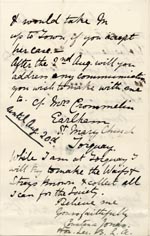 & would take M
up to Town if you accept
her case. &
After the 2nd Aug. will you
address any communication
you wish to make with me
to c/o Mrs Crommelin
Earlham
St. Mary Church
Torquay.
until Aug 20th
While I am at Torquay I
will try to make the Waifs &
Strays known & collect all
I can for the funds.
Believe me
Yours faithfully
Jones
Hon. Sec.